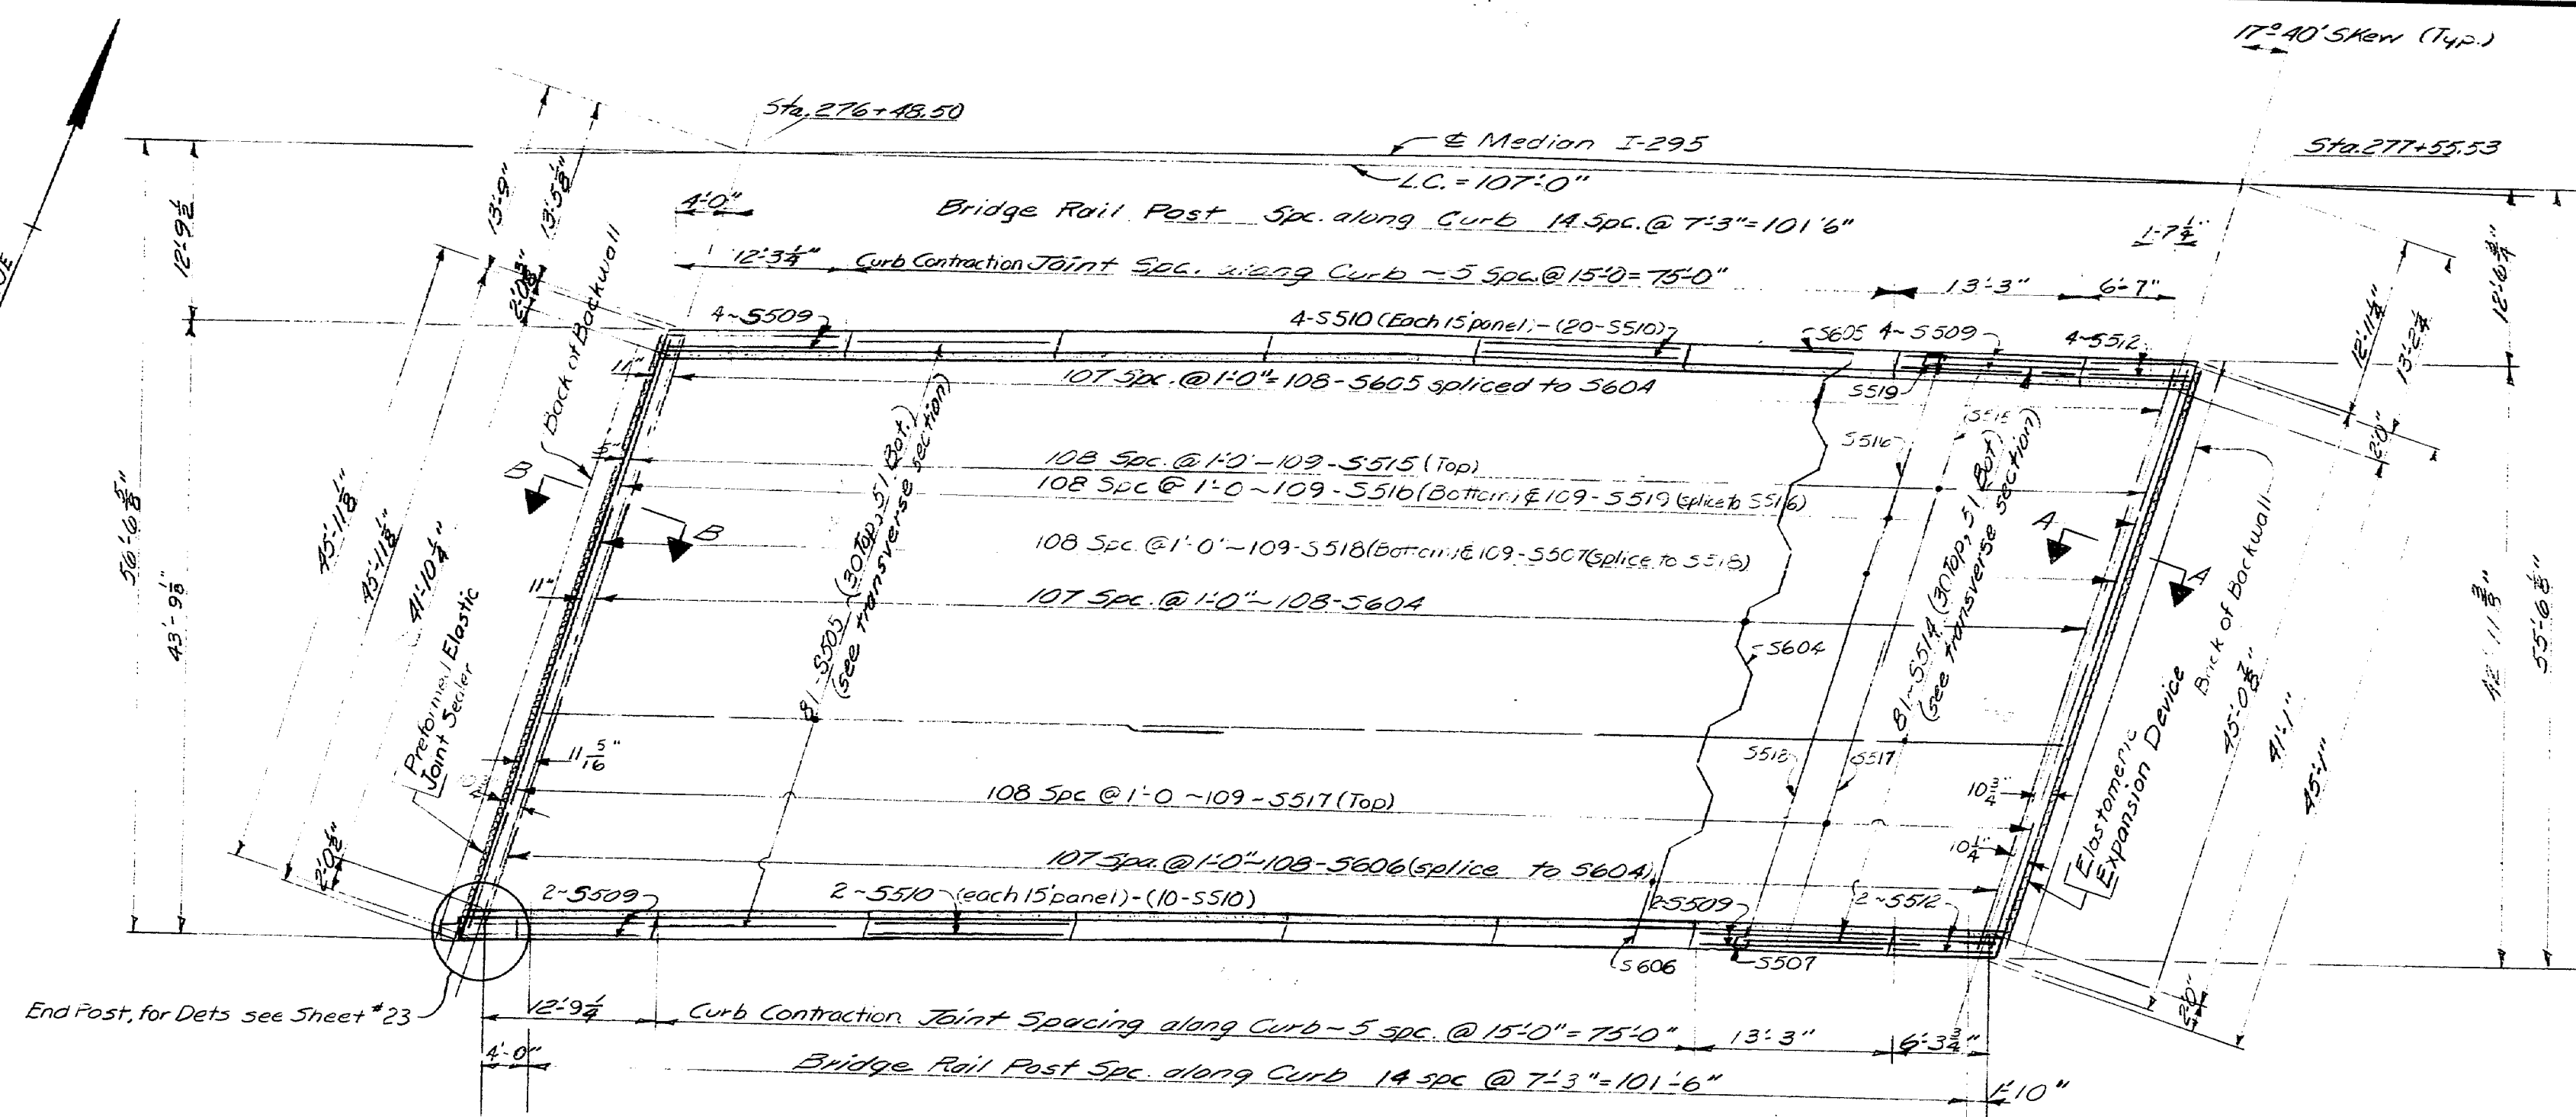 17°40' Skew (Typ.)
Sta. 276+48.50
℄ Median I-295
Sta. 277+55.53
L.C. = 107'-0"
13'-9"
13'-5⅛"
4'-0"
Bridge Rail Post Spc. along Curb 14 Spc. @ 7'-3" = 101'6"
1'-7¼"
12'-9½"
12'-3¼"
Curb Contraction Joint Spc. along Curb ~ 5 Spc. @ 15'-0 = 75'-0"
13'-3"
6'-7"
12'-6¾"
12'-11¼"
13'-2¼"
Back of Backwall
4~S509
4-S510 (Each 15' panel) - (20-S510)
S605
4~S509
4~S512
11"
107 Spc. @ 1'-0" = 108-S605 spliced to S604
S519
S515
2'-0"
S516
108 Spc. @ 1'-0" ~ 109-S515 (Top)
108 Spc @ 1'-0 ~ 109-S516 (Bottom) & 109-S519 (splice to S516)
B
B
A
A
108 Spc. @ 1'-0" ~ 109-S518 (Bottom) & 109-S507 (splice to S518)
11"
107 Spc. @ 1'-0" ~ 108-S604
56'-6⅝"
43'-9⅛"
45'-11⅛"
45'-11⅛"
41'-10¼"
81-S505 (30 Top, 51 Bot.)
(see transverse section)
S604
81-S514 (30 Top, 51 Bot)
(see transverse section)
Back of Backwall
42'-11⅜"
55'-6⅛"
45'-0⅞"
41'-1"
45'-1"
Preformed Elastic
Joint Sealer
Elastomeric
Expansion Device
11 5/16"
S518
S517
108 Spc @ 1'-0 ~ 109-S517 (Top)
10¾"
10¼"
107 Spa. @ 1'-0" ~ 108-S606 (splice to S604)
2'-0½"
2~S509
2~S510 (each 15' panel) - (10-S510)
2-S509
2~S512
S606
S507
End Post, for Dets see Sheet #23
12'-9¼
Curb Contraction Joint Spacing along Curb ~ 5 spc. @ 15'-0" = 75'-0"
13'-3"
6'-3¾"
2'-0"
4'-0"
Bridge Rail Post Spc. along Curb 14 spc @ 7'-3" = 101'-6"
1'-10"